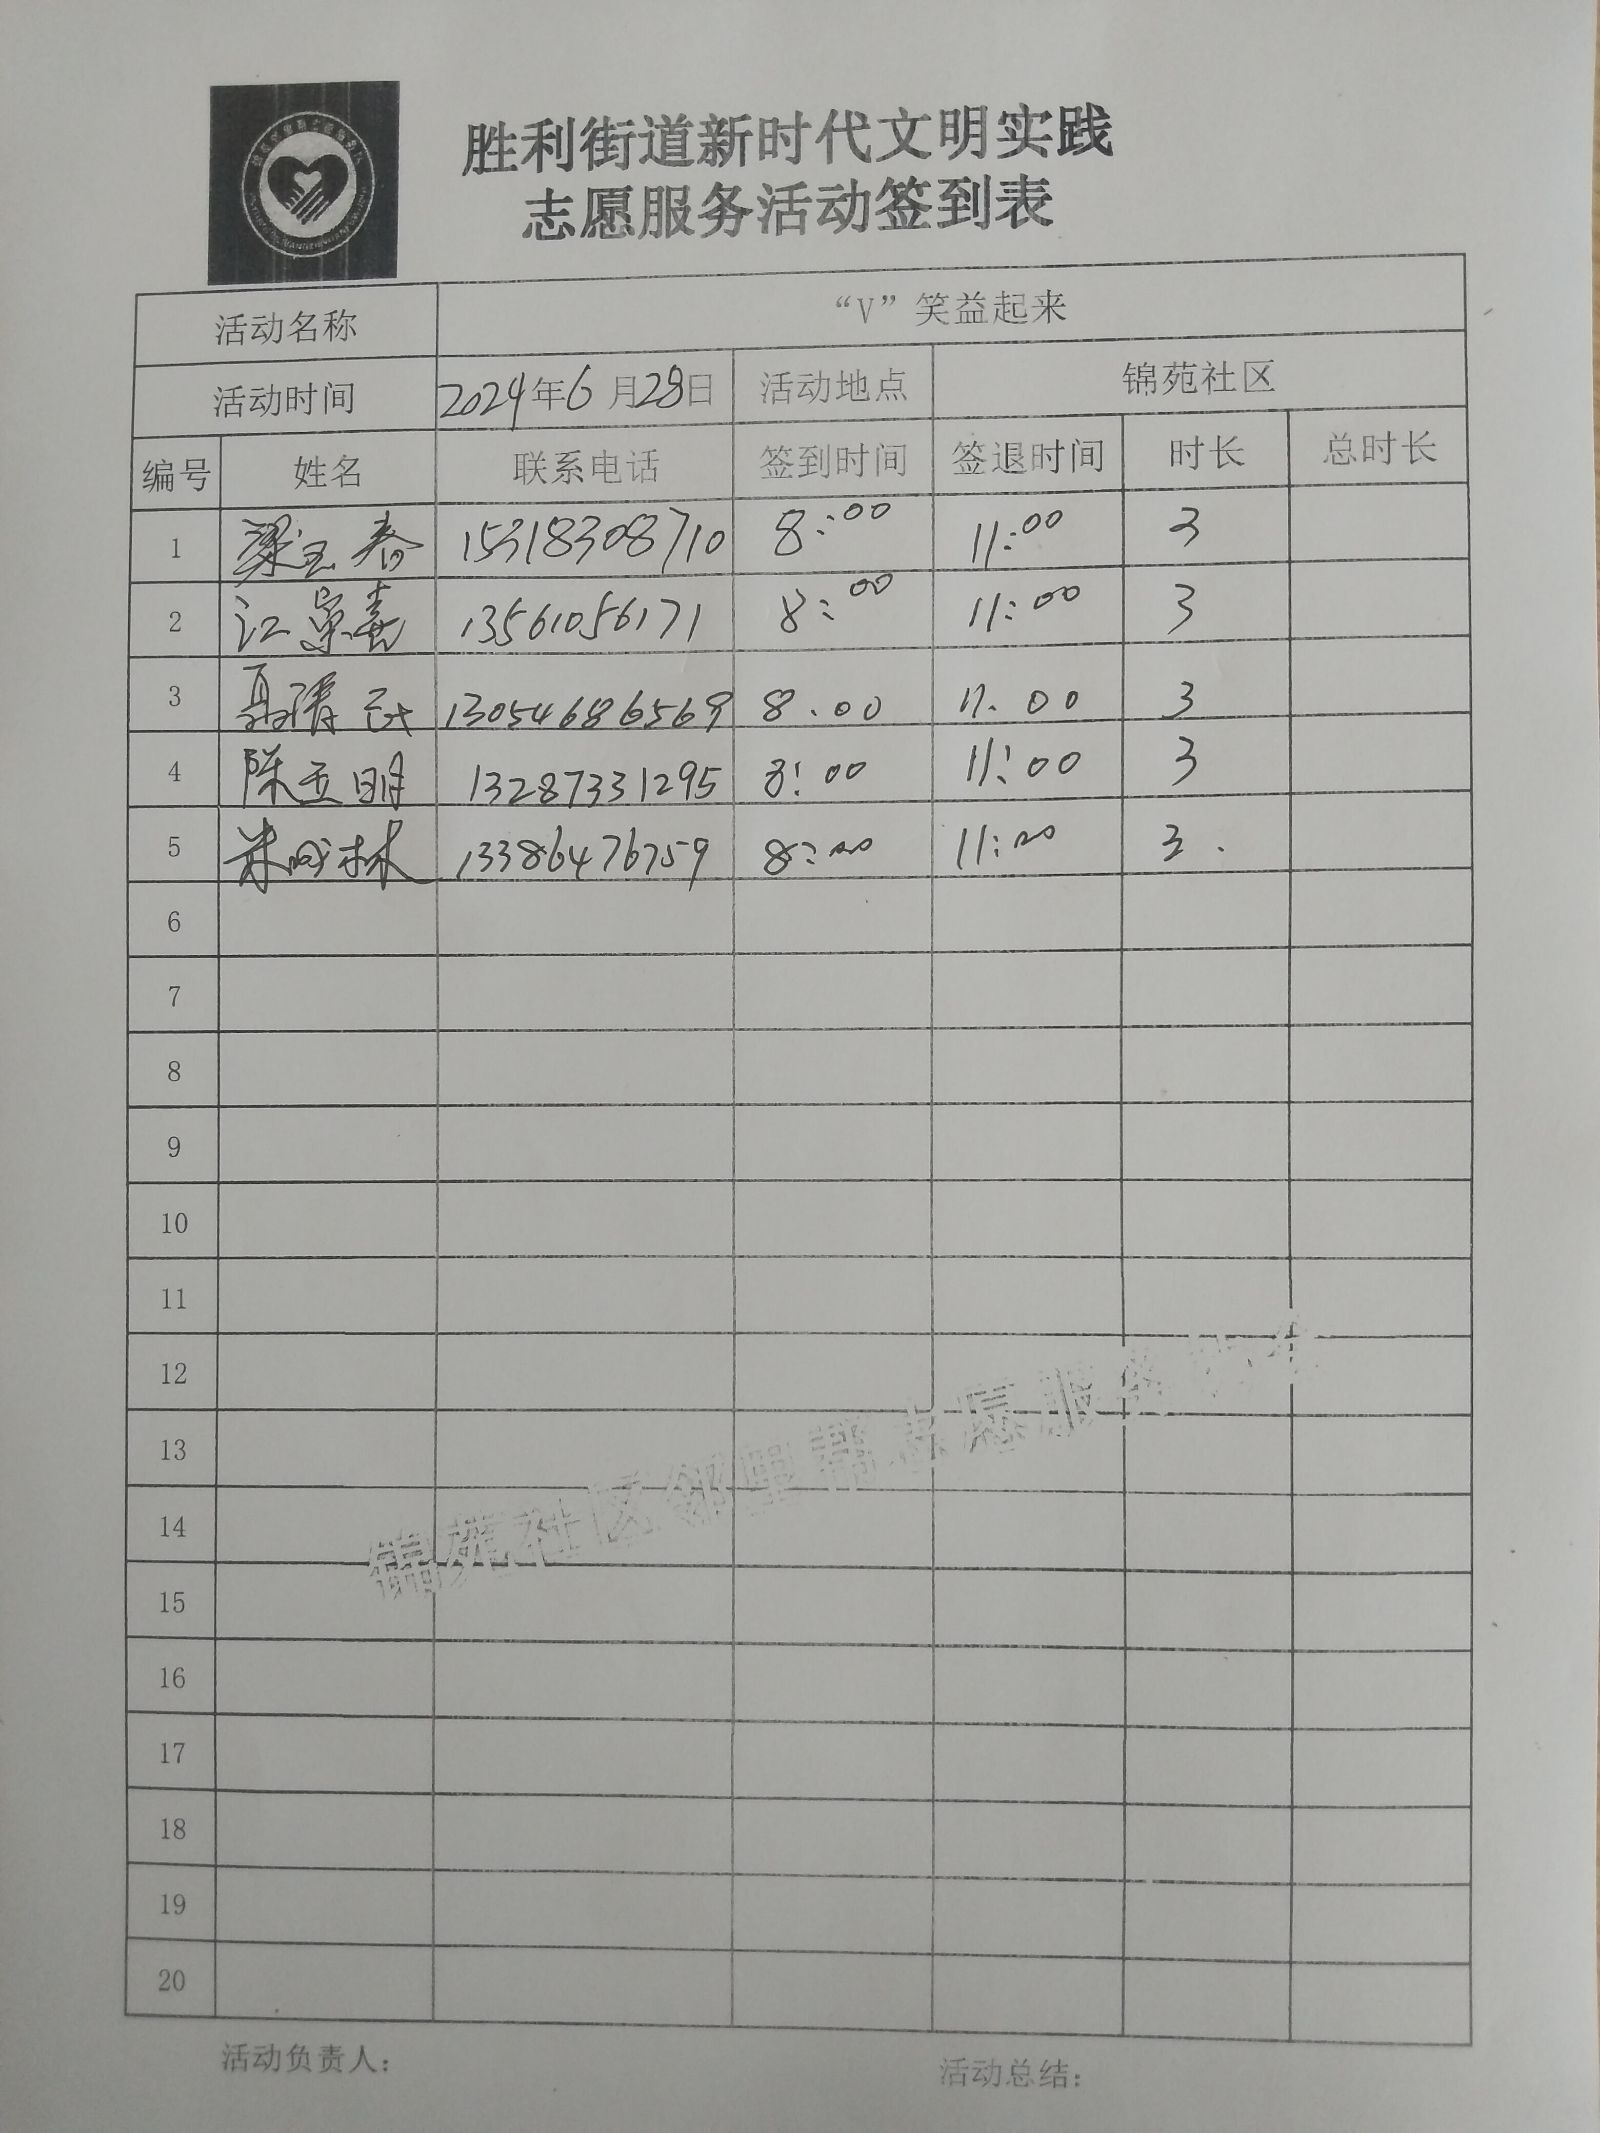 胜利街道新时代文明实践
志愿服务活动签到表
活动名称 “V”笑益起来
活动时间 2024年6月28日 活动地点 锦苑社区
编号 姓名 联系电话 签到时间 签退时间 时长 总时长
1 梁玉春 15318308710 8:00 11:00 3
2 江崇喜 13561056171 8:00 11:00 3
3 聂清云 13054686569 8.00 11.00 3
4 陈玉明 13287331295 8:00 11:00 3
5 米成林 13386476759 8:00 11:00 3.
6
7
8
9
10
11
12
13
14
锦苑社区邻里帮志愿服务
15
16
17
18
19
20
活动负责人： 活动总结：